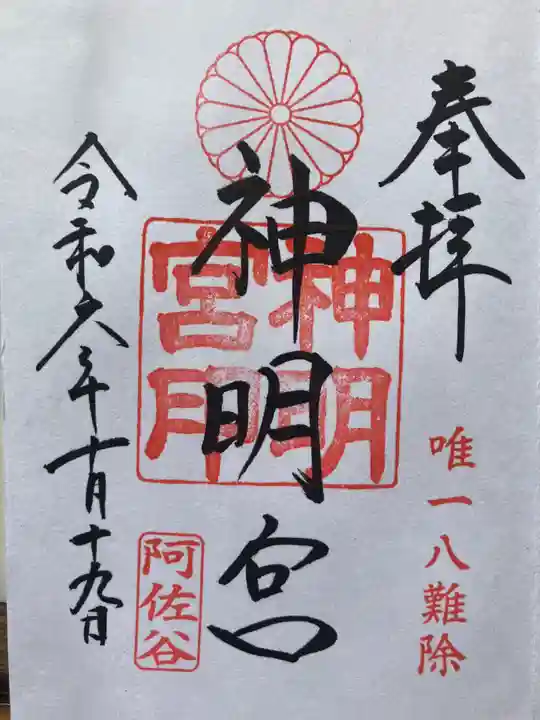 奉拝
唯一八難除
神明宮
神明宮印
阿佐谷
令和六年十月十九日